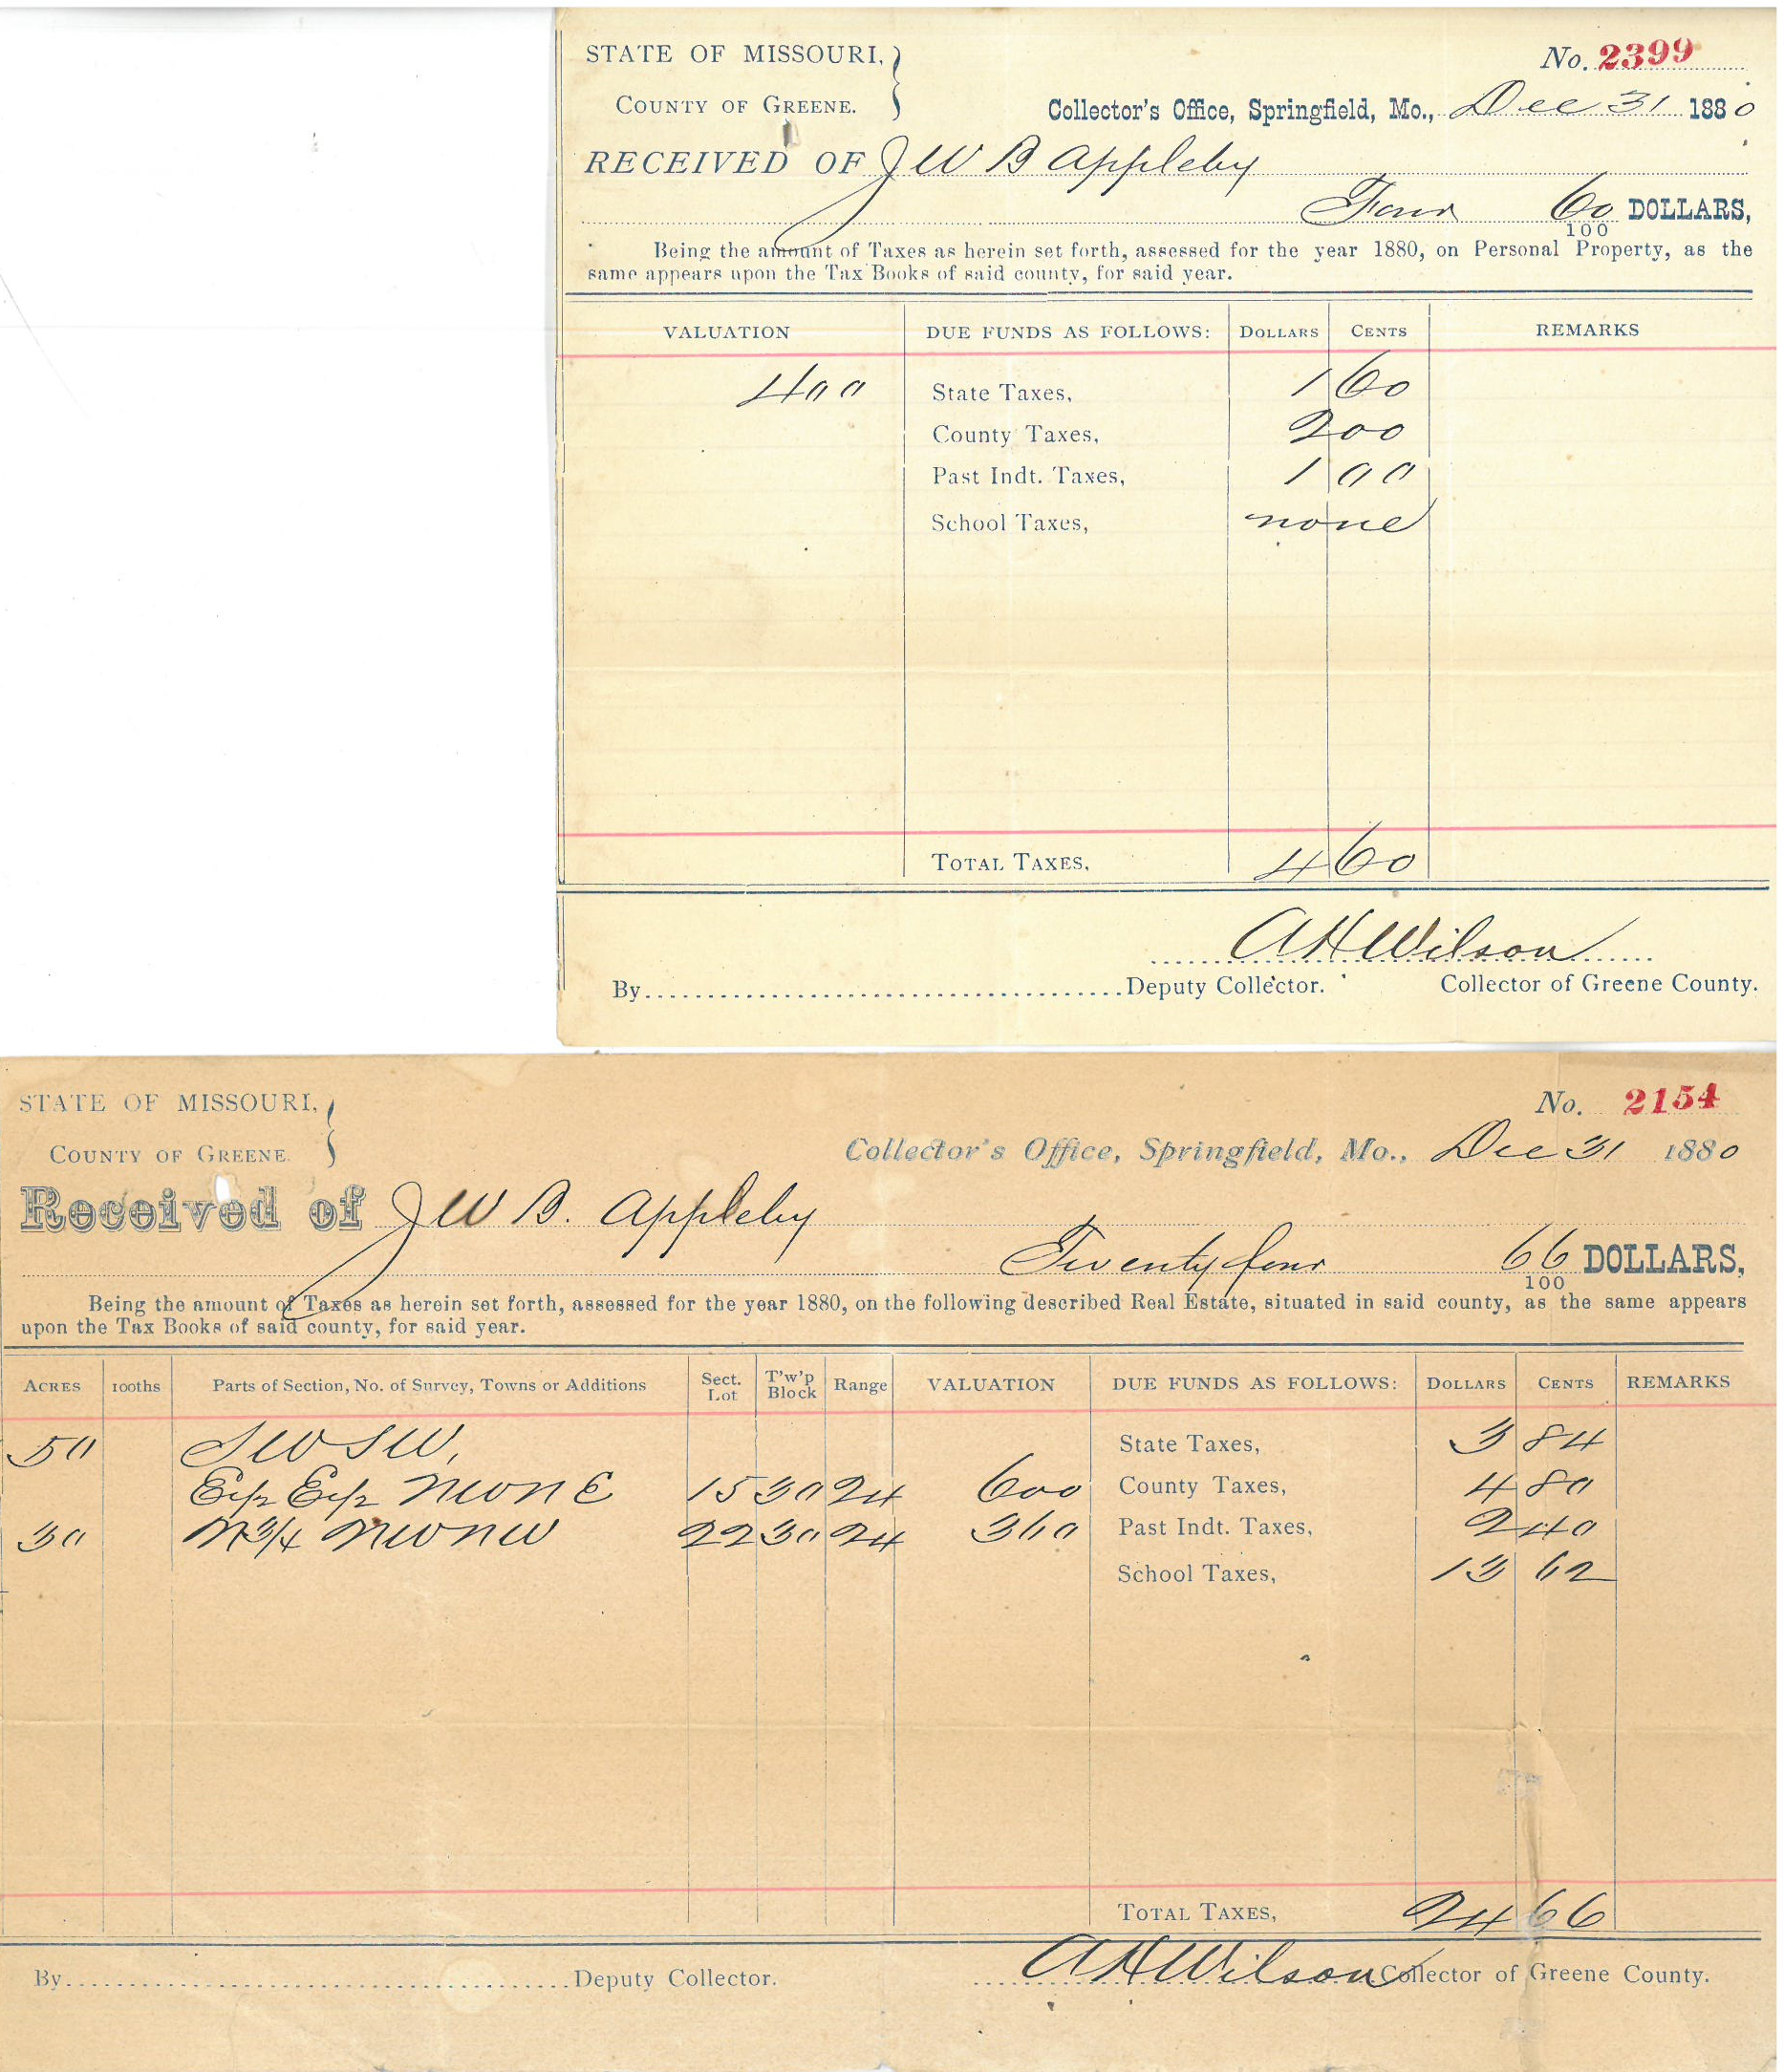 STATE OF MISSOURI, } No. 2399
COUNTY OF GREENE. Collector's Office, Springfield, Mo., Dec 31 1880
RECEIVED OF J W B Appleby
Four 60/100 DOLLARS,
Being the amount of Taxes as herein set forth, assessed for the year 1880, on Personal Property, as the
same appears upon the Tax Books of said county, for said year.
VALUATION DUE FUNDS AS FOLLOWS: DOLLARS CENTS REMARKS
400 State Taxes, 1 60
County Taxes, 2 00
Past Indt. Taxes, 1 00
School Taxes, none
TOTAL TAXES, 4 60
A H Wilson
By Deputy Collector. Collector of Greene County.
STATE OF MISSOURI, } No. 2154
COUNTY OF GREENE. Collector's Office, Springfield, Mo., Dec 31 1880
Received of J W B. Appleby
Twenty four 66/100 DOLLARS,
Being the amount of Taxes as herein set forth, assessed for the year 1880, on the following described Real Estate, situated in said county, as the same appears
upon the Tax Books of said county, for said year.
ACRES 100ths Parts of Section, No. of Survey, Towns or Additions Sect. Lot T'w'p Block Range VALUATION DUE FUNDS AS FOLLOWS: DOLLARS CENTS REMARKS
50 SW SW, State Taxes, 3 84
E 1/2 E 1/2 NW NE 15 30 24 600 County Taxes, 4 80
30 N 3/4 NW NW 22 30 24 360 Past Indt. Taxes, 2 40
School Taxes, 13 62
TOTAL TAXES, 24 66
By Deputy Collector. A H Wilson Collector of Greene County.